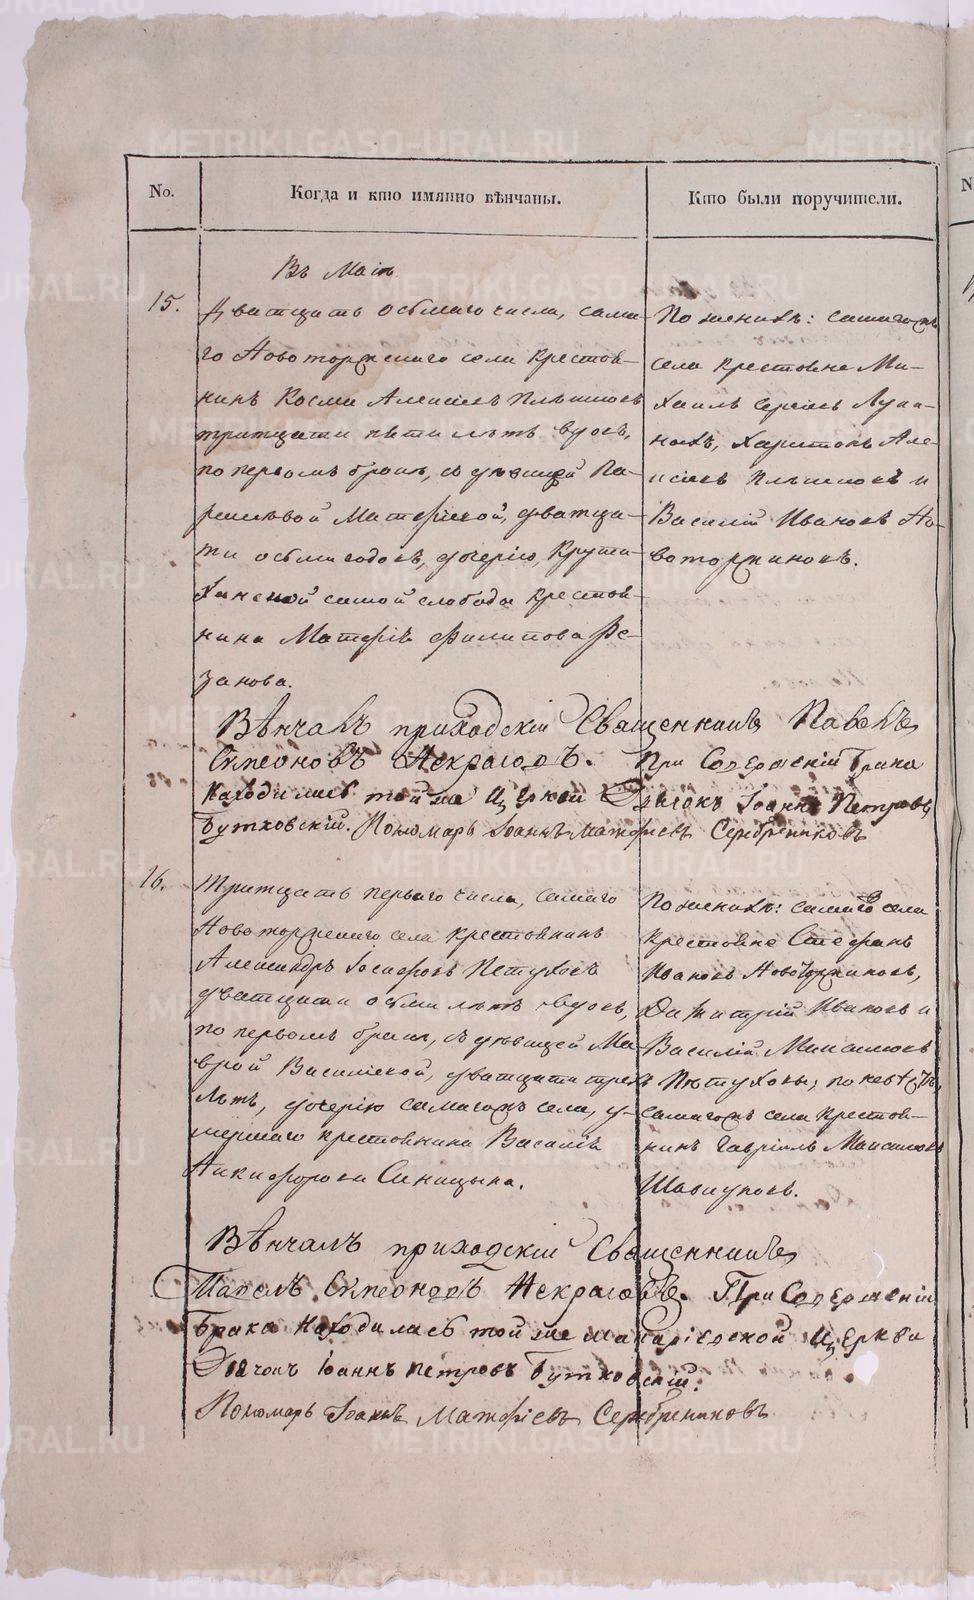 No.
Когда и кто имянно вѣнчаны.
Кто были поручители.
Въ Маіѣ
15.
Дватцать осьмаго числа, сама-
го Новоторжскаго села крестья-
нинъ Косма Алексѣевъ
тритцати пяти лѣтъ вдовъ,
по первомъ бракѣ, съ дѣвицей Па-
Матфѣевой, дватца-
ти осьми годовъ, дочерью, Крути-
хинской самой слободы крестья-
нина Матфѣя Филипова Ре-
занова.
По женихѣ: самагожъ
села крестьяне Ми-
хаилъ Сергѣевъ
Харитонъ Але-
ксѣевъ и
Василій Ивановъ Но-
воторжиновъ.
Вѣнчалъ приходскій Священникъ Павелъ
Симеоновъ Некрасовъ. При Содержаніи Брака
находились той же Церкви Дьячокъ Іоаннъ Петровъ
Бутковскій. Пономарь Іоаннъ Матфіевъ Серебрениковъ
16.
Тритцать перваго числа, самаго
Новоторжскаго села крестьянинъ
Александръ Іосифовъ Пѣтуховъ
дватцати осьми лѣтъ вдовъ,
по первомъ бракѣ, съ дѣвицей Ма-
врой Василіевой, дватцати трехъ
лѣтъ, дочерію самагожъ села, у-
мершаго крестьянина Василія
Никифорова Синицына.
По женихѣ: самаго села
крестьяне Стефанъ
Ивановъ Новоторжиновъ,
Димитрій Ивановъ и
Василій Максимовъ
Пѣтуховы, по невѣстѣ,
самагожъ села крестья-
нинъ Гавріилъ Максимовъ
Шавкуновъ.
Вѣнчалъ приходскій Священникъ
Павелъ Симеоновъ Некрасовъ. При Содержаніи
Брака находились той же Церкви
Дьячокъ Іоаннъ Петровъ Бутковскій.
Пономарь Іоаннъ Матфіевъ Серебрениковъ
METRIKI.GASO-URAL.RU